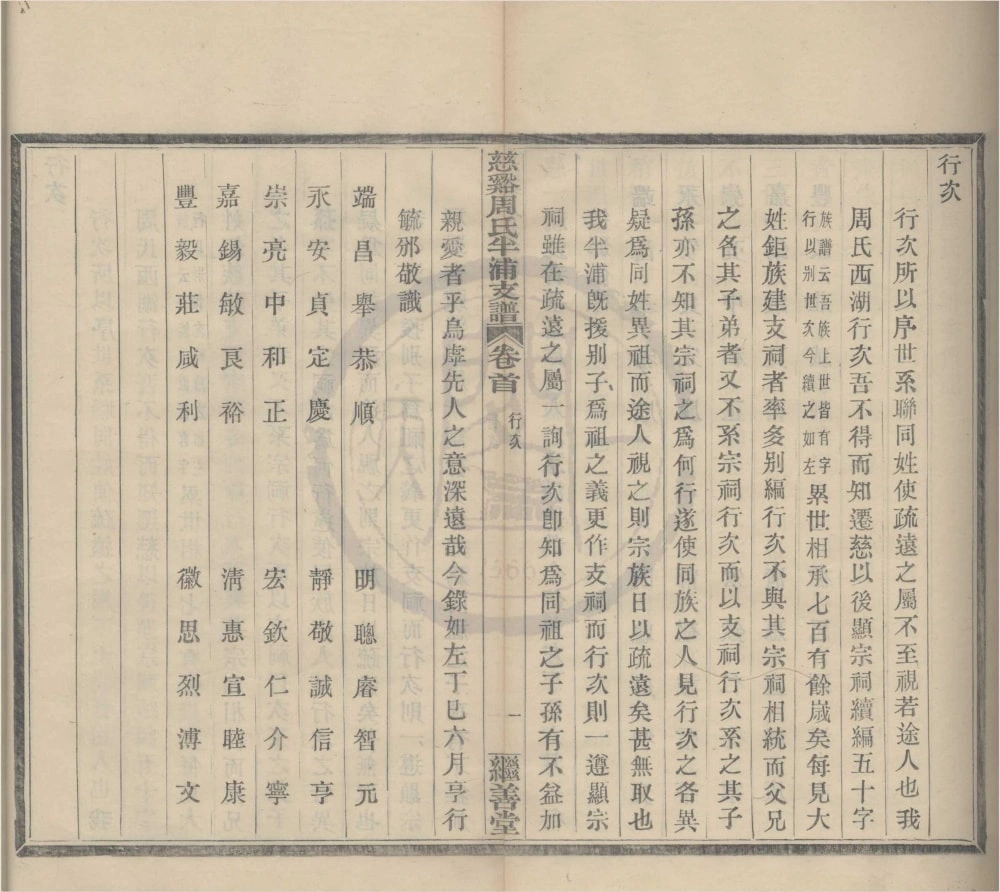 行次
行次所以序世系聯同姓使疏遠之屬不至視若途人也我
周氏西湖行次吾不得而知遷慈以後顯宗祠續編五十字
族譜云吾族上世皆有字
行以別世次今續之如左
累世相承七百有餘歲矣每見大
姓鉅族建支祠者率多別編行次不與其宗祠相統而父兄
之各其子弟者又不系宗祠行次而以支祠行次系之其子
孫亦不知其宗祠之爲何行遂使同族之人見行次之各異
疑爲同姓異祖而途人視之則宗族日以疏遠矣甚無取也
我半浦旣援别子爲祖之義更作支祠而行次則一遵顯宗
祠雖在疏遠之屬一詢行次卽知爲同祖之子孫有不益加
慈谿周氏半浦支譜
卷首
行次
一
繼善堂
親愛者乎烏虖先人之意深遠哉今錄如左丁巳六月亨行
毓邠敬識
端昌舉恭順 明聰睿智元
永安貞定慶 靜敬誠信亨
崇亮中和正 宏欽仁介寧
嘉錫敏良裕 淸惠宣睦康
豐毅莊咸利 徽思烈溥文